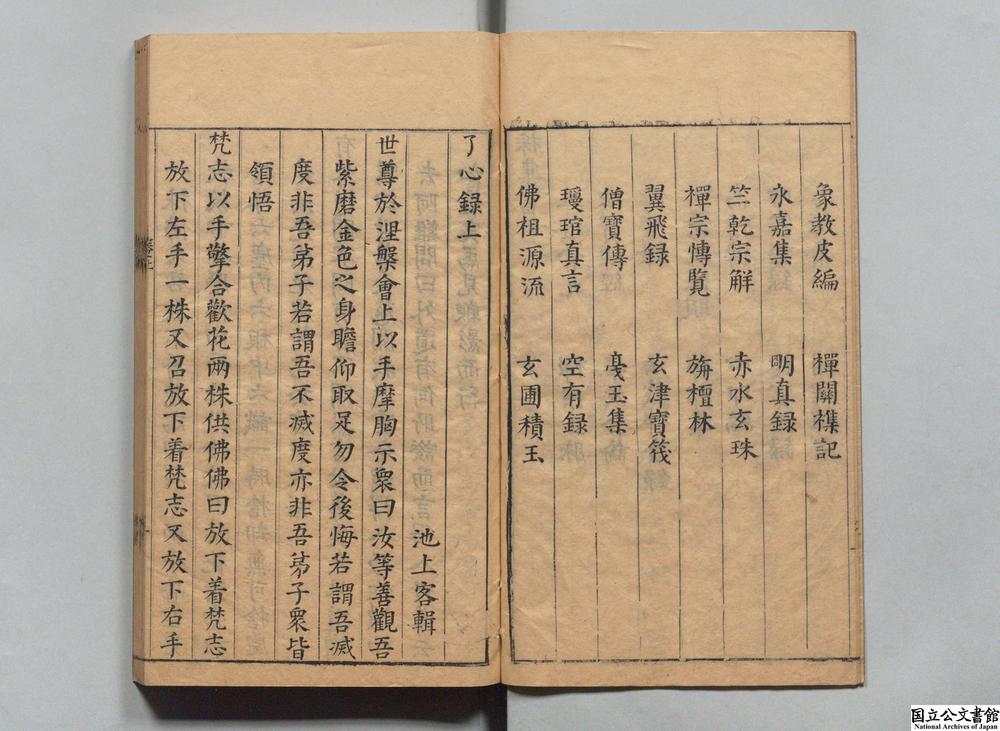 象教皮編　禪關襍記
永嘉集　明真録
竺乾宗解　赤水玄珠
禪宗博覽　旃檀林
翼飛録　玄津寶筏
僧寶傳　戞玉集
璦琯真言　空有録
佛祖源流　玄圃積玉
了心録上
池上客輯
世尊於涅槃會上以手摩胸示衆曰汝等善觀吾
紫磨金色之身瞻仰取足勿令後悔若謂吾滅
度非吾弟子若謂吾不滅度亦非吾弟子衆皆
領悟
梵志以手擎合歡花兩株供佛佛曰放下着梵志
放下左手一株又召放下着梵志又放下右手
国立公文書館
National Archives of Japan